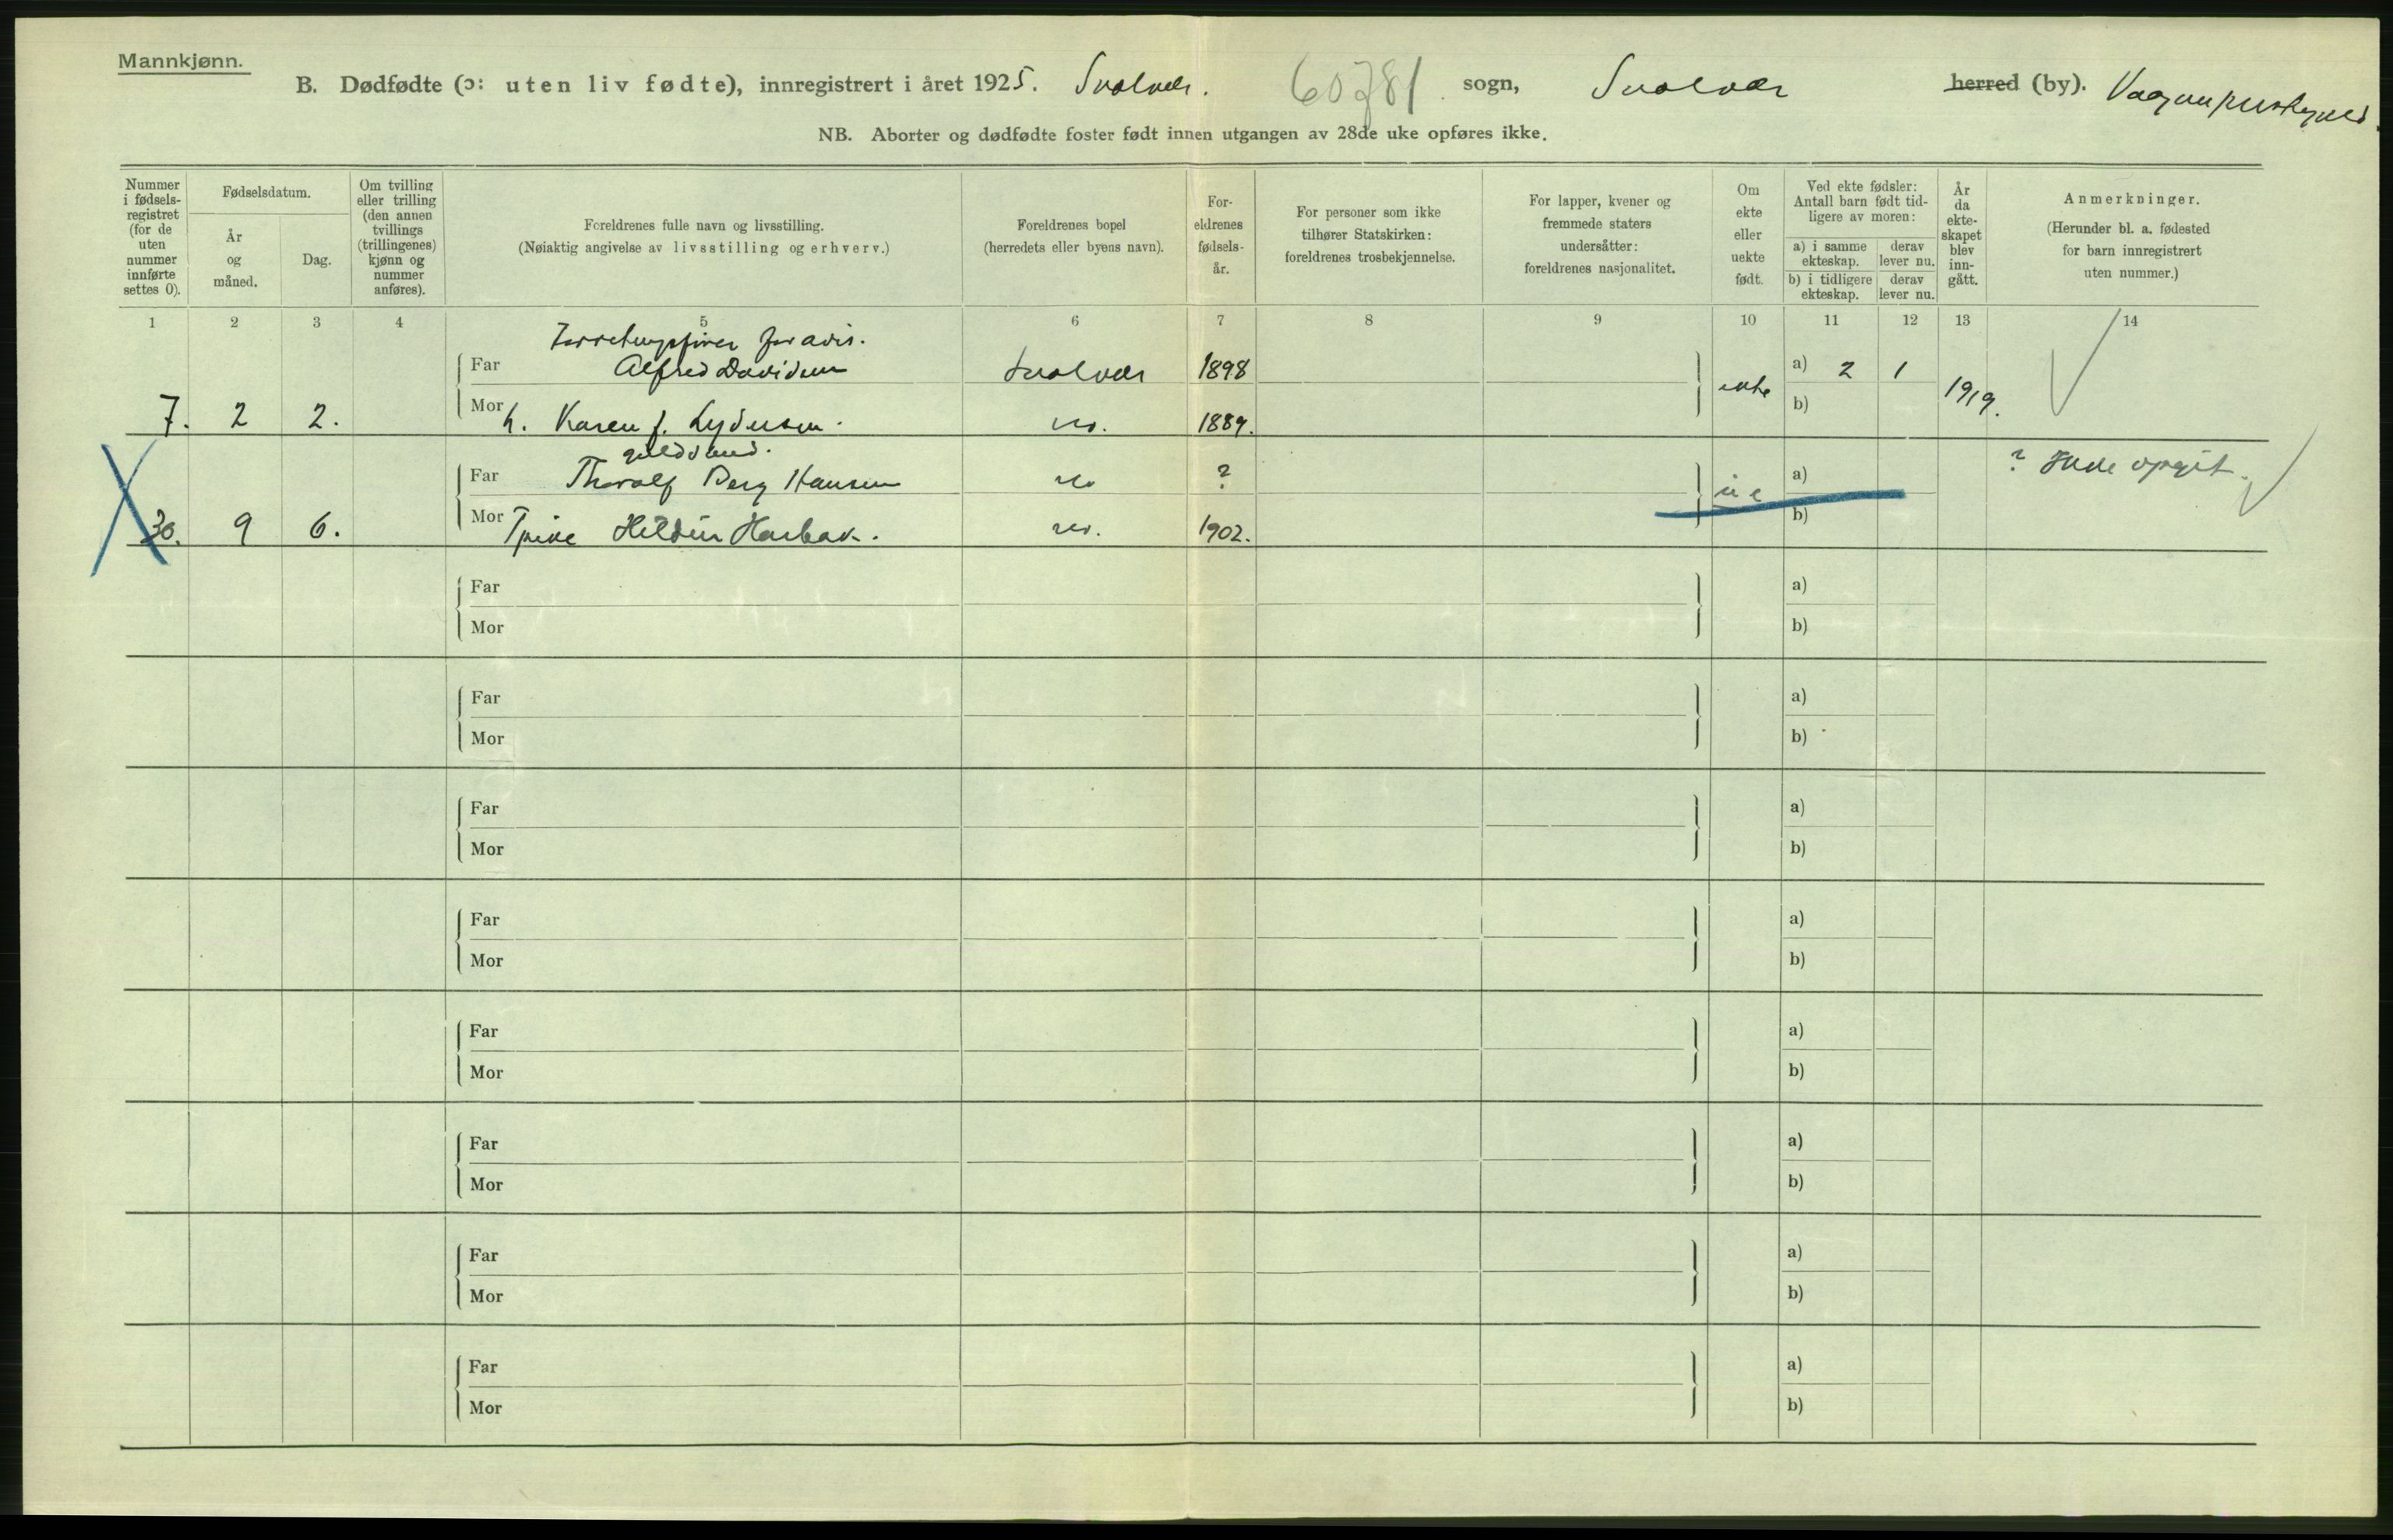 Mannkjønn.
B. Dødfødte (ɔ: uten liv fødte), innregistrert i året 1925. Svolvær. 60781 sogn, Svolvær herred (by).
NB. Aborter og dødfødte foster født innen utgangen av 28de uke opføres ikke.
Nummer i fødsels-registret (for de uten nummer innførte settes 0).
Fødselsdatum.
År og måned.
Dag.
Om tvilling eller trilling (den annen tvillings (trillingenes) kjønn og nummer anføres).
Foreldrenes fulle navn og livsstilling.
(Nøiaktig angivelse av livsstilling og erhverv.)
Foreldrenes bopel
(herredets eller byens navn).
For-eldrenes fødsels-år.
For personer som ikke tilhører Statskirken: foreldrenes trosbekjennelse.
For lapper, kvener og fremmede staters undersåtter: foreldrenes nasjonalitet.
Om ekte eller uekte født.
Ved ekte fødsler: Antall barn født tid-ligere av moren:
a) i samme ekteskap.
derav lever nu.
b) i tidligere ekteskap.
derav lever nu.
År da ekte-skapet blev inn-gått.
Anmerkninger.
(Herunder bl. a. fødested for barn innregistrert uten nummer.)
1 2 3 4 5 6 7 8 9 10 11 12 13 14
Far Alfred Davidsen Svolvær 1898 ekte a) 2 1 1919.
7. 2 2. Mor h. Karen J. Lydersen. 1889. b)
Far Thoralf Berg Hansen ? ue a) ? Ikke opgit.
30. 9 6. Mor Pike 1902. b)
Far a)
Mor b)
Far a)
Mor b)
Far a)
Mor b)
Far a)
Mor b)
Far a)
Mor b)
Far a)
Mor b)
Far a)
Mor b)
Far a)
Mor b)